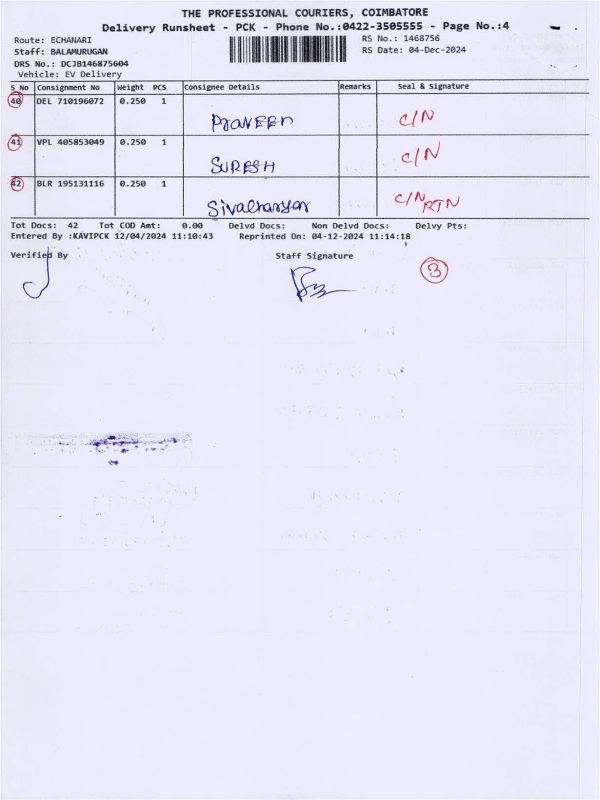 THE PROFESSIONAL COURIERS, COIMBATORE
Delivery Runsheet - PCK - Phone No.:0422-3505555 - Page No.:4
Route: ECHANARI
RS No.: 1468756
Staff: BALAMURUGAN
RS Date: 04-Dec-2024
DRS No.: DCJB146875604
Vehicle: EV Delivery
S No Consignment No Weight PCS Consignee Details Remarks Seal & Signature
40 DEL 710196072 0.250 1 PRAVEEN C/N
41 VPL 405853049 0.250 1 SURESH C/N
42 BLR 195131116 0.250 1 C/N RTN
Tot Docs: 42 Tot COD Amt: 0.00 Delvd Docs: Non Delvd Docs: Delvy Pts:
Entered By :KAVIPCK 12/04/2024 11:10:43 Reprinted On: 04-12-2024 11:14:18
Verified By Staff Signature
3